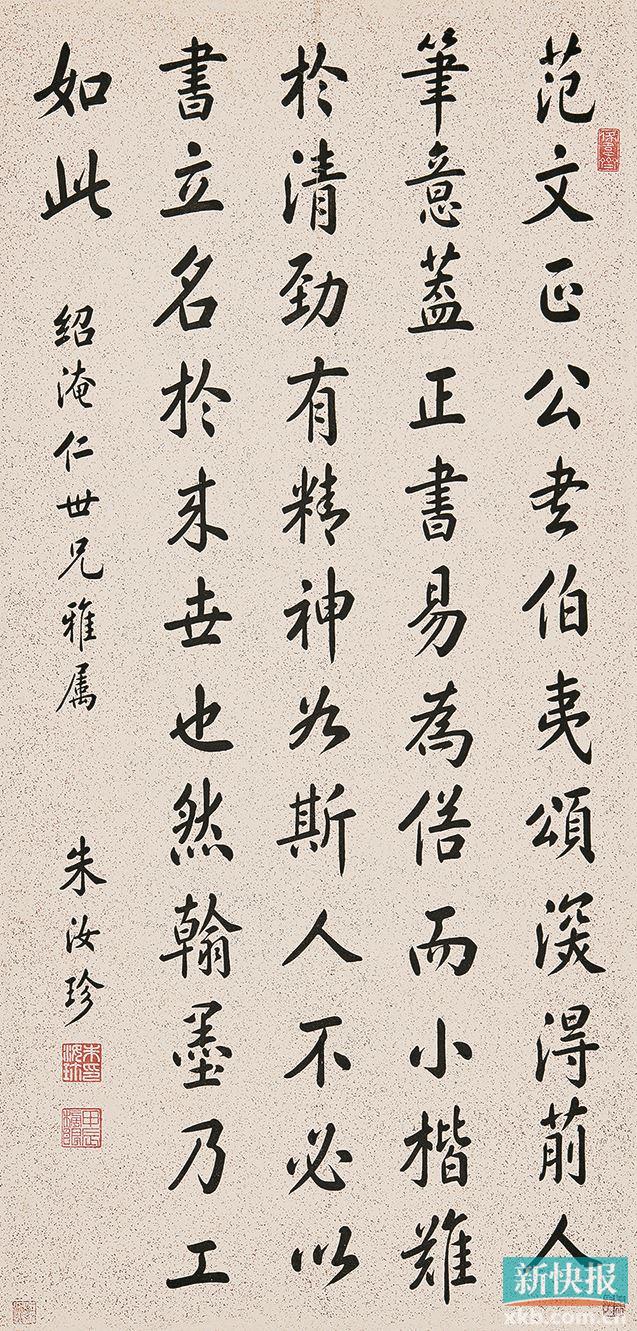 范文正公書伯夷頌深得前人
筆意蓋正書易為俗而小楷難
於清勁有精神公斯人不必以
書立名於来世也然翰墨乃工
如此
紹淹仁世兄雅属
朱汝珍
朱印汝珍
甲辰榜眼
新快报
xkb.com.cn